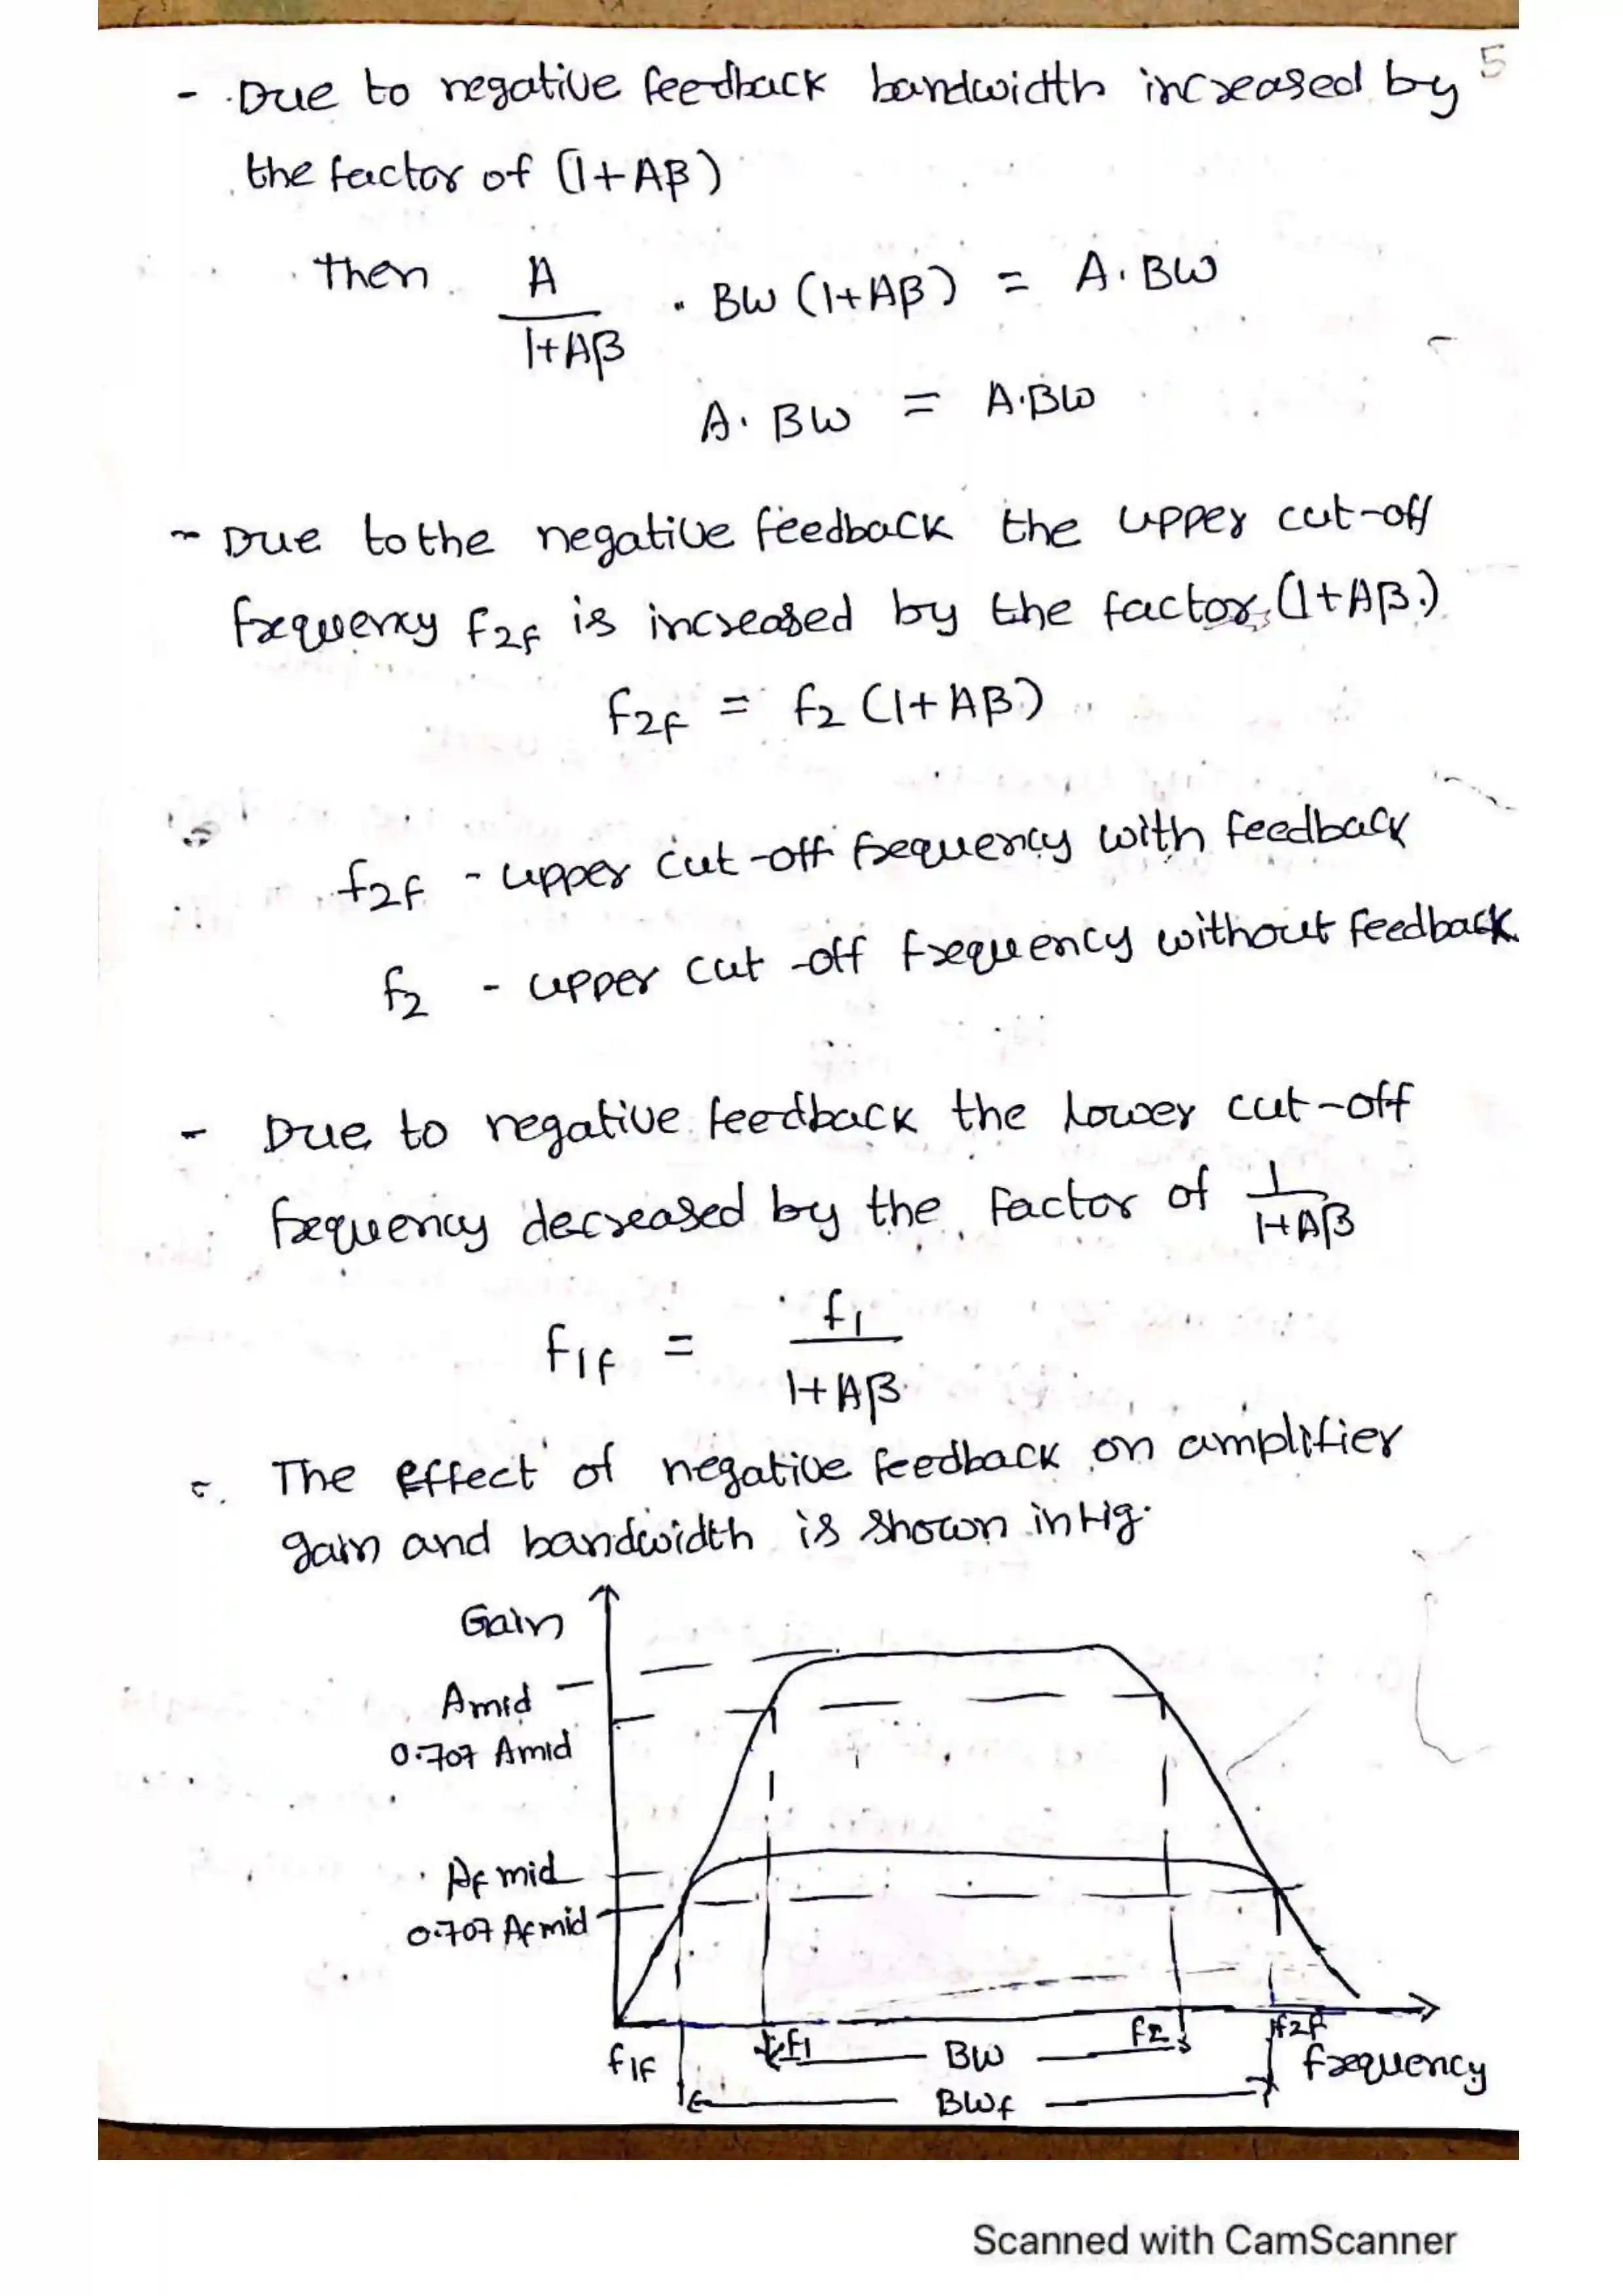 5
- Due to negative feedback bandwidth increased by
the factor of (1+Aβ)
Then A/1+Aβ . BW (1+Aβ) = A. BW
A. BW = A.BW
- Due to the negative feedback the upper cut-off
frequency f2f is increased by the factor (1+Aβ)
f2f = f2 (1+Aβ)
f2f - upper cut-off frequency with feedback
f2 - upper cut-off frequency without feedback
- Due to negative feedback the lower cut-off
frequency decreased by the factor of 1/1+Aβ
f1f = f1/1+Aβ
- The effect of negative feedback on amplifier
gain and bandwidth is shown in fig.
Gain
Amid
0.707 Amid
Af mid
0.707 Af mid
f1f f1 BW f2 f2f frequency
BWf
Scanned with CamScanner